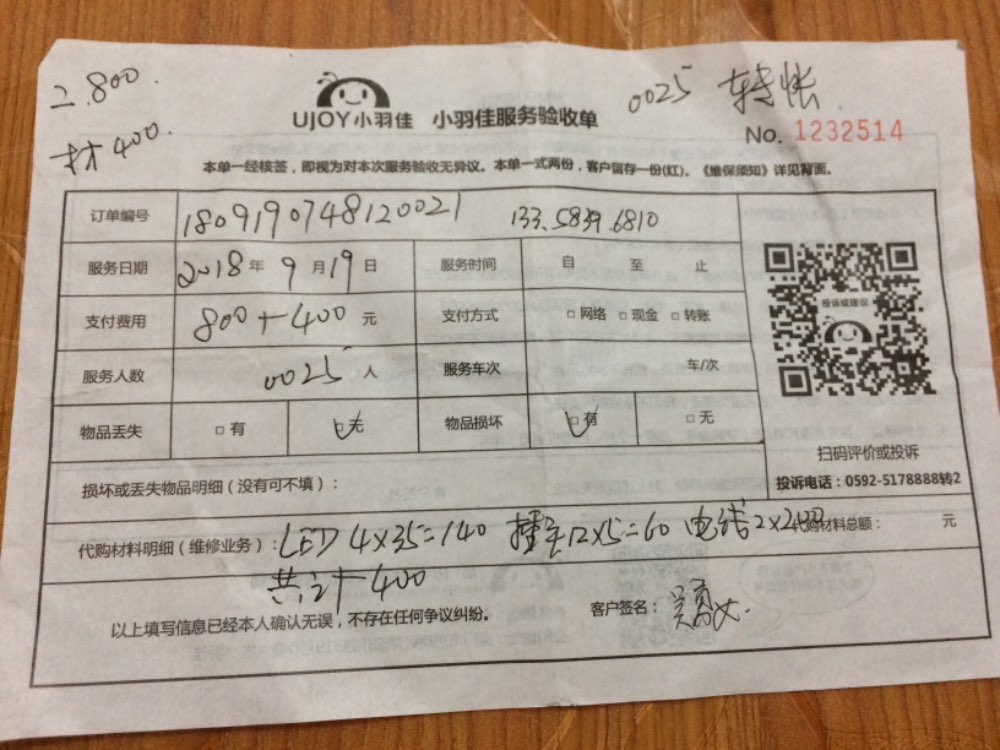 工.800.
材400.
0025 转帐.
UJOY小羽佳 小羽佳服务验收单
No. 1232514
本单一经核签，即视为对本次服务验收无异议。本单一式两份，客户留存一份(红)。《维保须知》详见背面。
订单编号 180919074812 0021 133.5839.6810
服务日期 2018年9月19日 服务时间 自 至 止
支付费用 800+400元 支付方式 □网络 □现金 □转账
投诉或建议
服务人数 0025人 服务车次 车/次
物品丢失 □有 □无 物品损坏 □有 □无
扫码评价或投诉
投诉电话：0592-5178888转2
损坏或丢失物品明细（没有可不填）：
代购材料明细（维修业务）：LED 4×35=140 12×5=60 电线2×200 代购材料总额： 元
共计 400
以上填写信息已经本人确认无误，不存在任何争议纠纷。 客户签名：